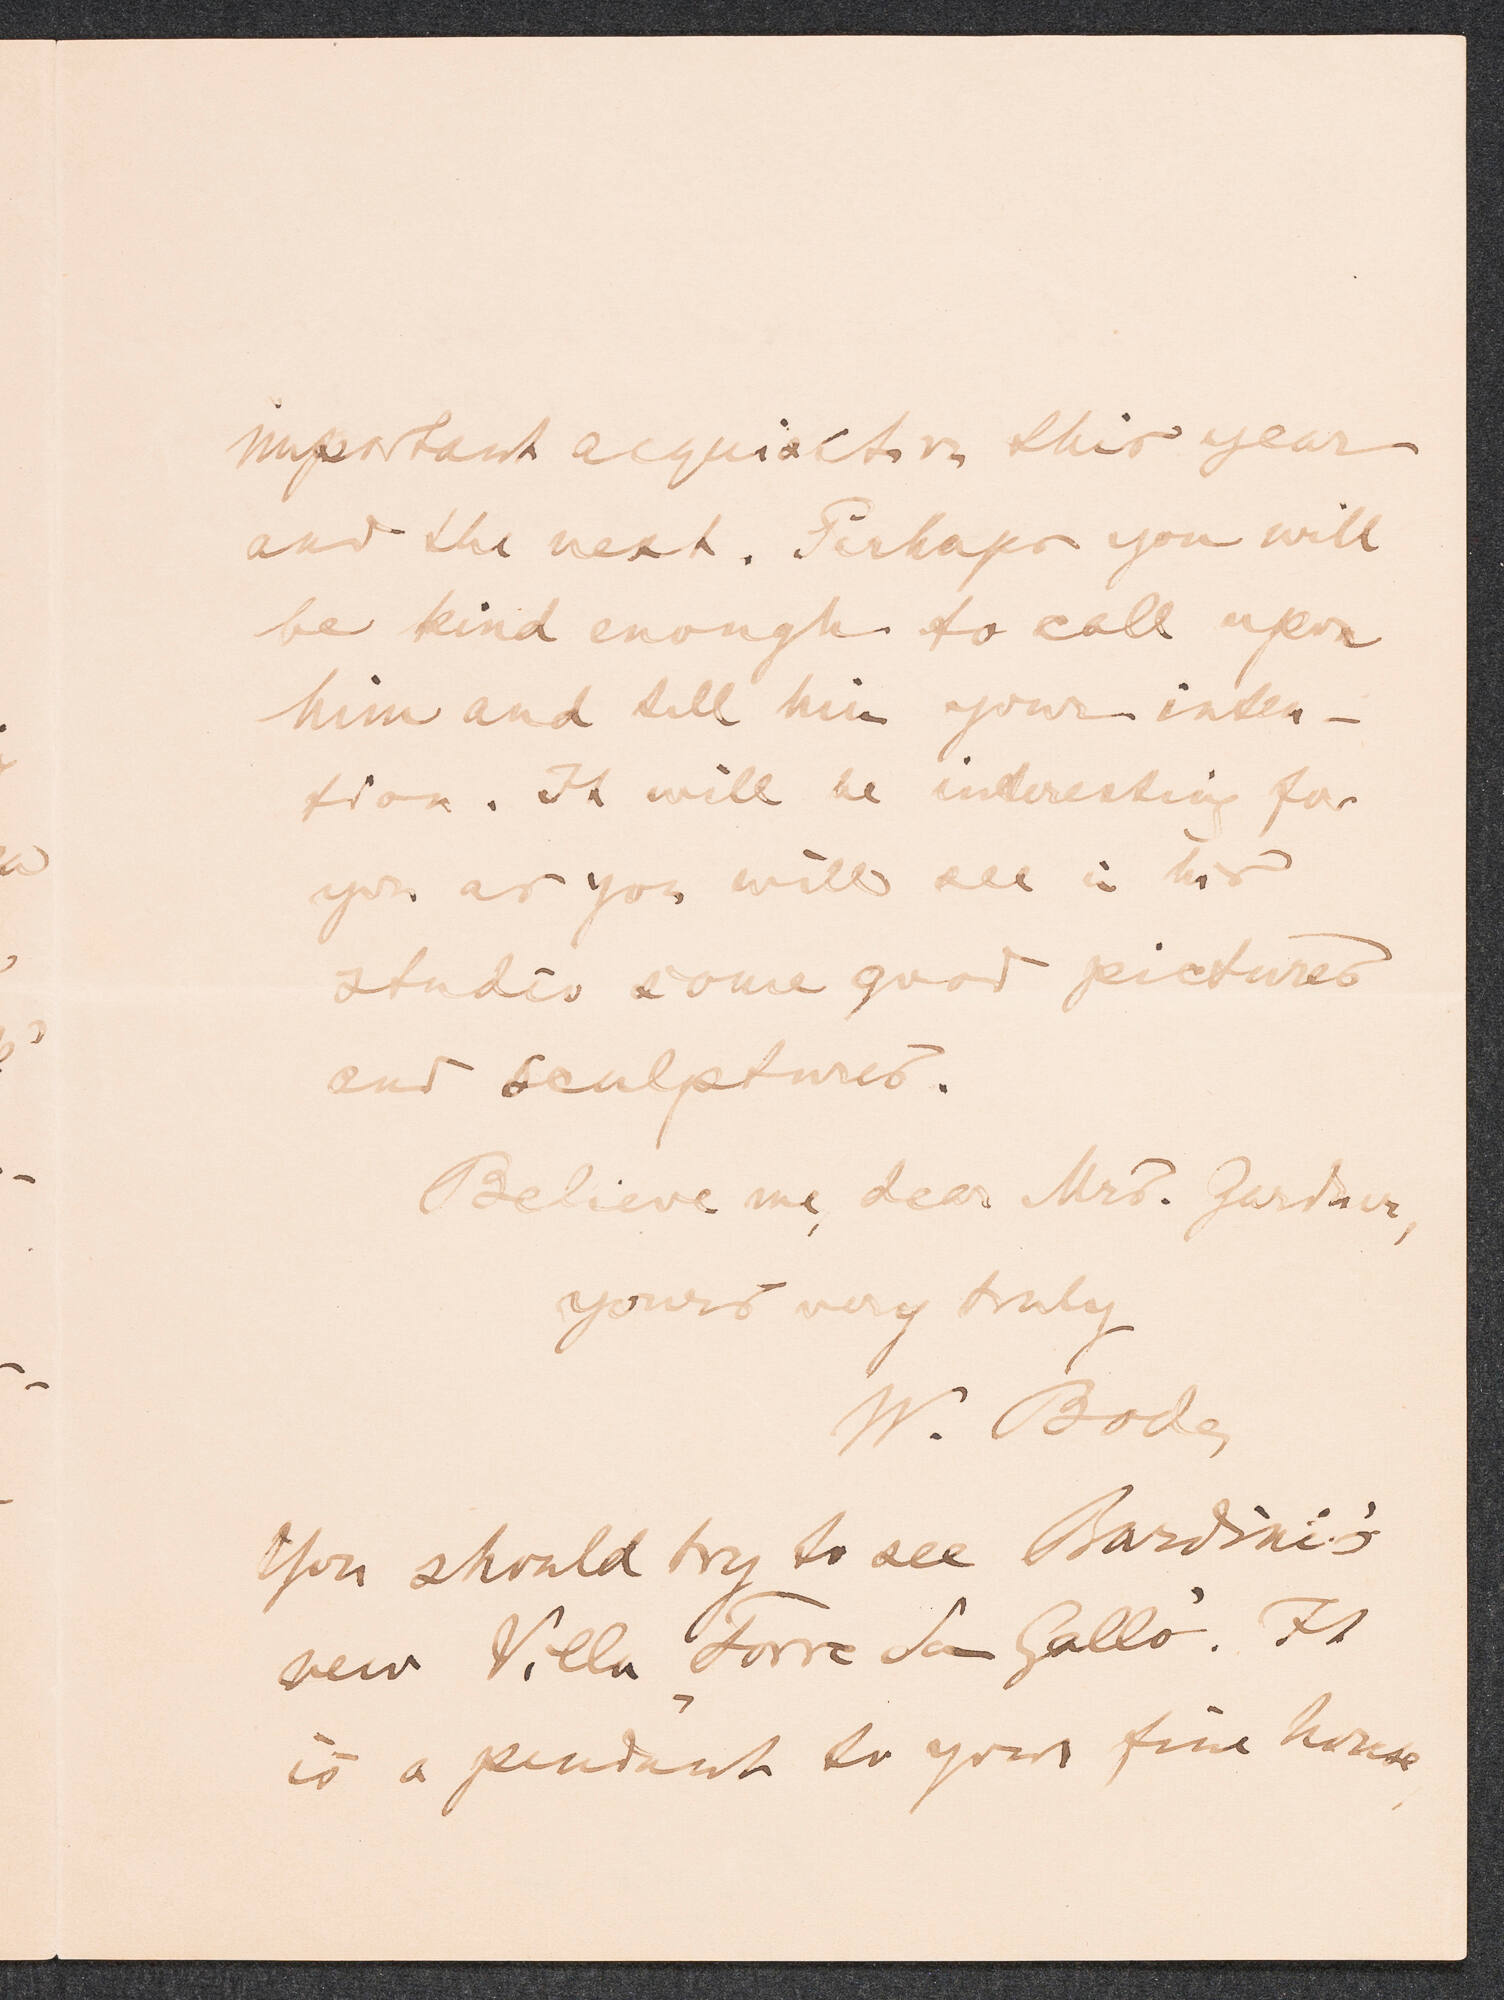 important acquisition this year
and the next. Perhaps you will
be kind enough to call upon
him and tell him your inten-
tion. It will be interesting for
you as you will see in his
studio some good pictures
and sculptures.
Believe me, dear Mrs. Gardner,
yours very truly
W. Bode
You should try to see Bardini's
new Villa „Torre da Gallo'. It
is a pendant to your fine house,